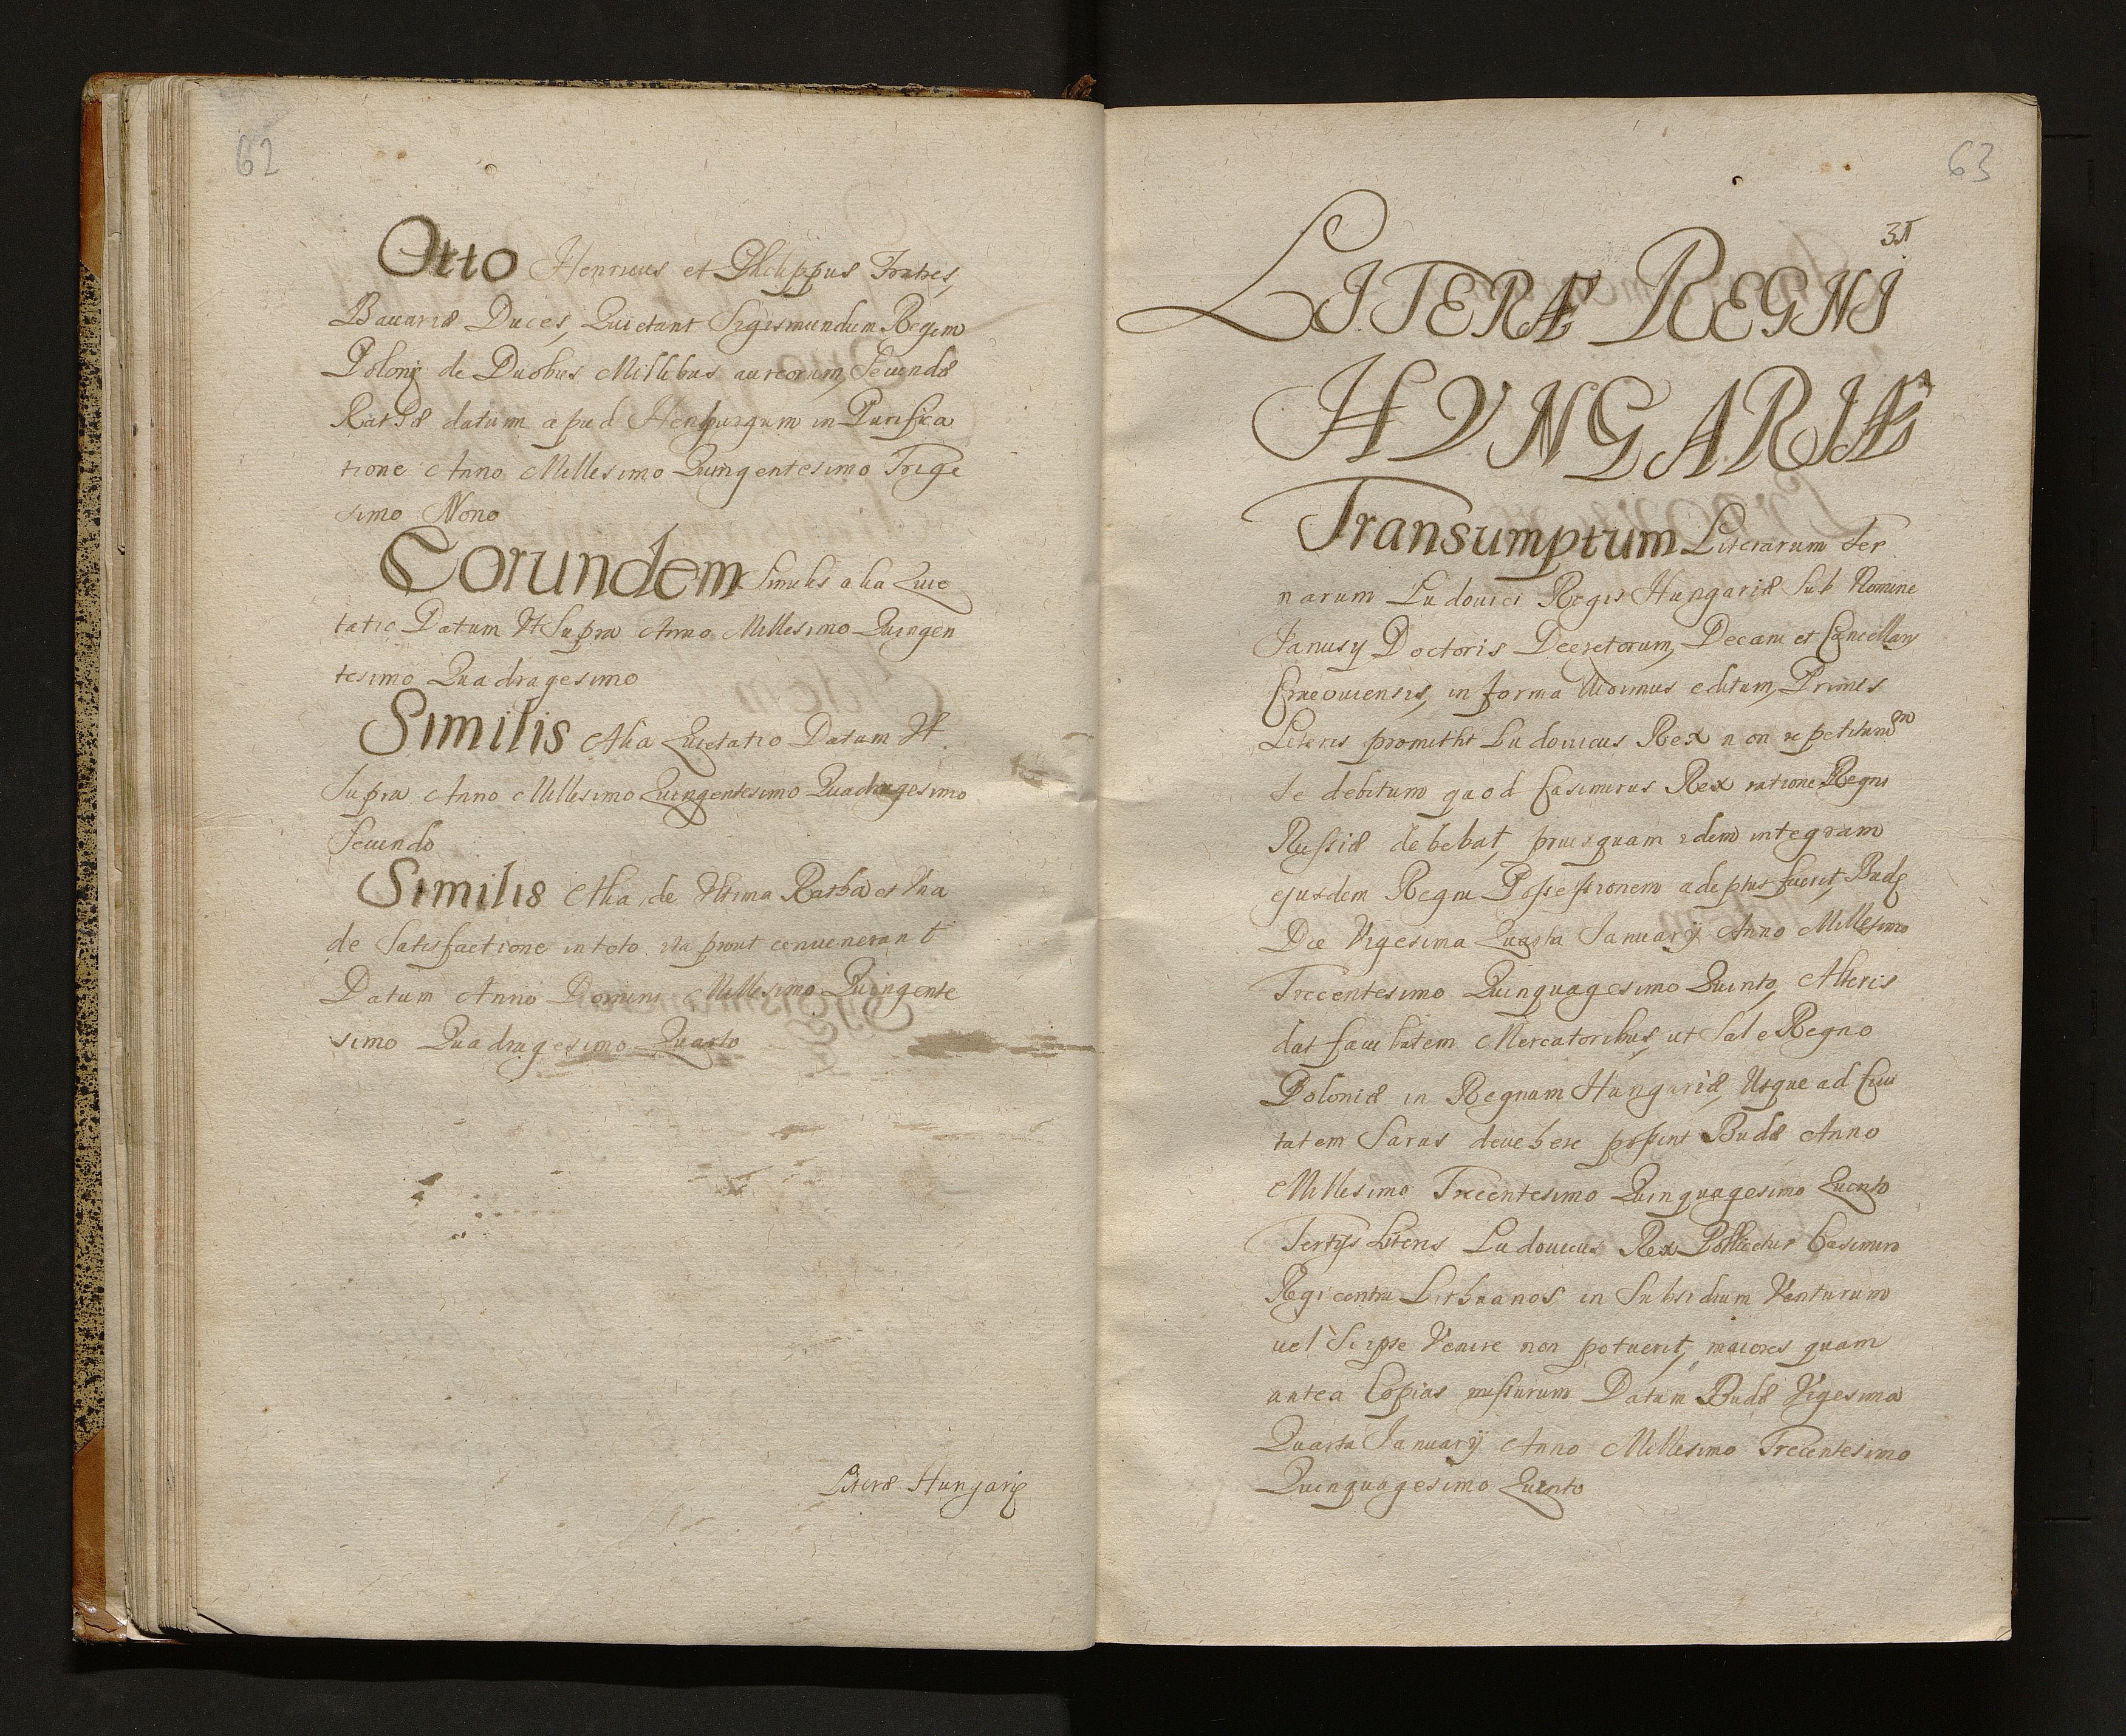 62
Otto Henricus et Philippus Fratres,
Bauariæ Duces, Quietant Sigismundum Regem
Polonię de Duobus Millibus aureorum, Secundæ
Rathæ datum apud Henpurgum in Purifica
tione Anno Millesimo Quingentesimo Trige
simo Nono
Eorundem Similis alia Quie
tatio Datum Vt Supra Anno Millesimo Quingen
tesimo Quadragesimo
Similis Alia Quietatio Datum Vt
Supra Anno Millesimo Quingentesimo Quadragesimo
Secundo
Similis Alia, de Vltima Ratha et Vna
de Satisfactione in toto ita prout conuenerant
Datum Anno Domini Millesimo Quingente
simo Quadragesimo Quarto
Literæ Hungarię
63
31
LITERÆ REGNI
HVNGARIÆ
Transumptum Literarum Ter
narum Ludouici Regis Hungariæ Sub Nomine
Janusy Doctoris Decretorum, Decani et Cancellary
Cracouiensis, in forma Vidimus editum, Primis
Literis promittit Ludouicus Rex non repetiturum
se debitum quod Casimirus Rex ratione Regni
Russiæ debebat, priusquam idem integram
ejusdem Regni Possessionem adeptus fuerit, Budę
Die Vigesima Quarta Januarij Anno Millesimo
Trecentesimo Quinquagesimo Quinto, Alteris
dat facultatem Mercatoribus, ut Sal e Regno
Poloniæ in Regnum Hungariæ, Vsque ad Ciui
tatem Sarus deuehere possint Budæ Anno
Millesimo Trecentesimo Quinquagesimo Quinto
Tertijs Literis Ludouicus Rex Pollicetur Casimiro
Regi contra Lithuanos in Subsidium Venturum
uel Si ipse Venire non potuerit, maiores quam
antea Copias missurum Datum Budæ Vigesima
Quarta Januarij Anno Millesimo Trecentesimo
Quinquagesimo Quinto